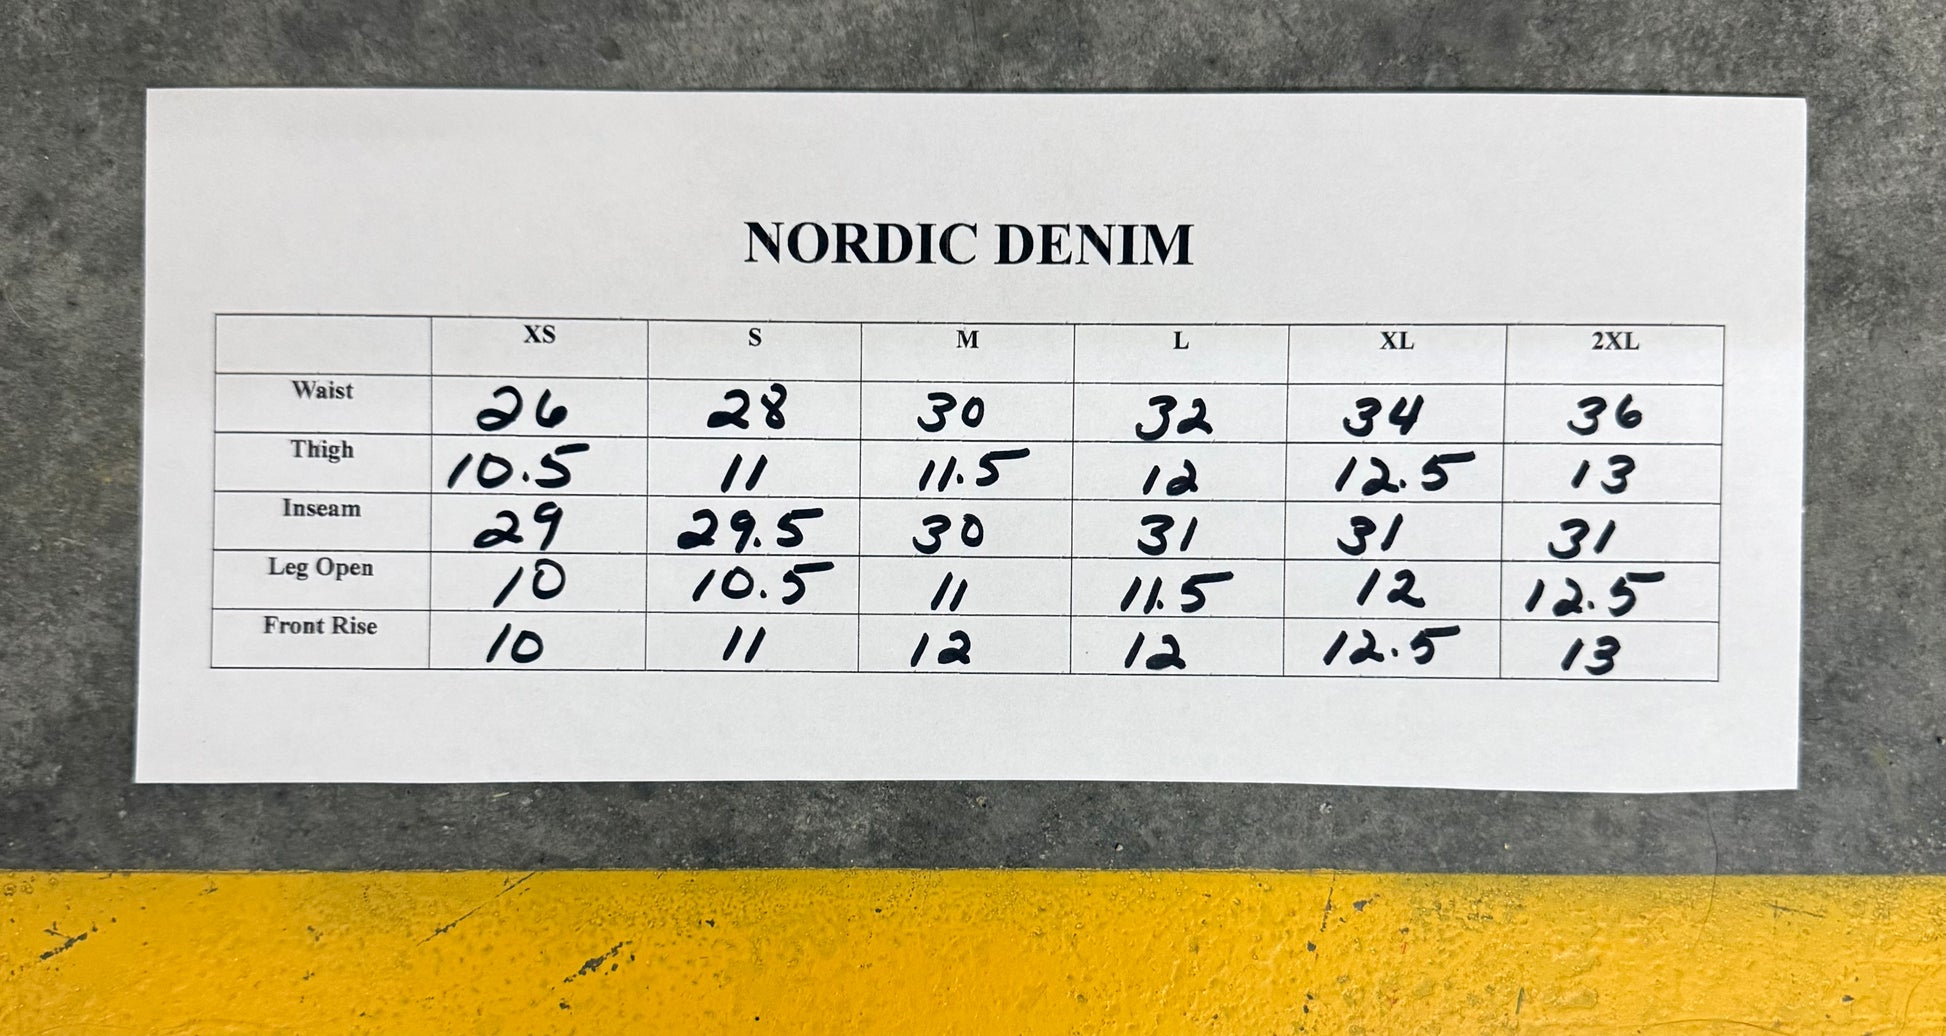 NORDIC DENIM
XS S M L XL 2XL
Waist 26 28 30 32 34 36
Thigh 10.5 11 11.5 12 12.5 13
Inseam 29 29.5 30 31 31 31
Leg Open 10 10.5 11 11.5 12 12.5
Front Rise 10 11 12 12 12.5 13